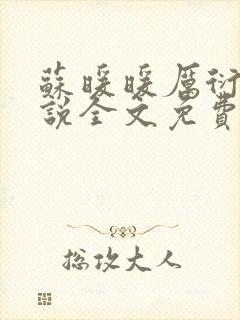 蘇暖暖厲衍
說全文免費
总攻大人